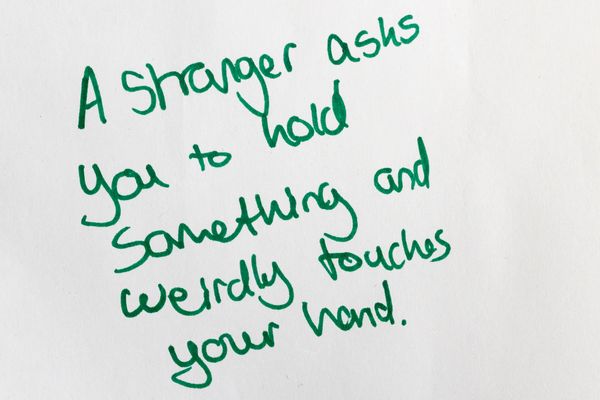 A stranger asks
you to hold
something and
weirdly touches
your hand.